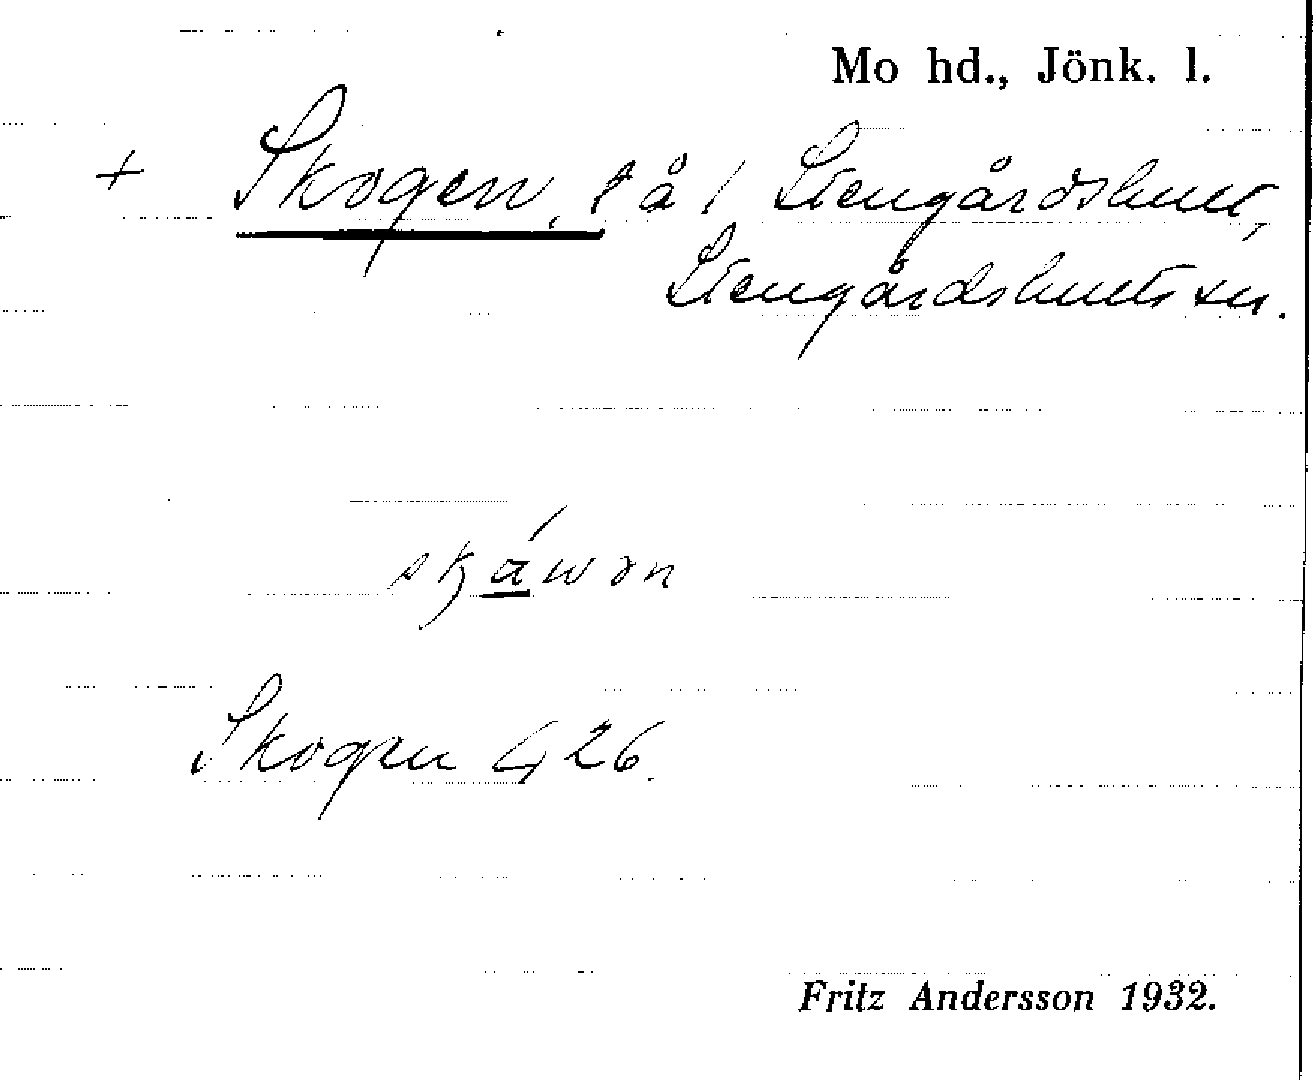 Mo hd., Jönk. l.
+ Skogen, t å / Stengårdshult,
Stengårdshults sn.
skáwən
Skogen 426.
Fritz Andersson 1932.